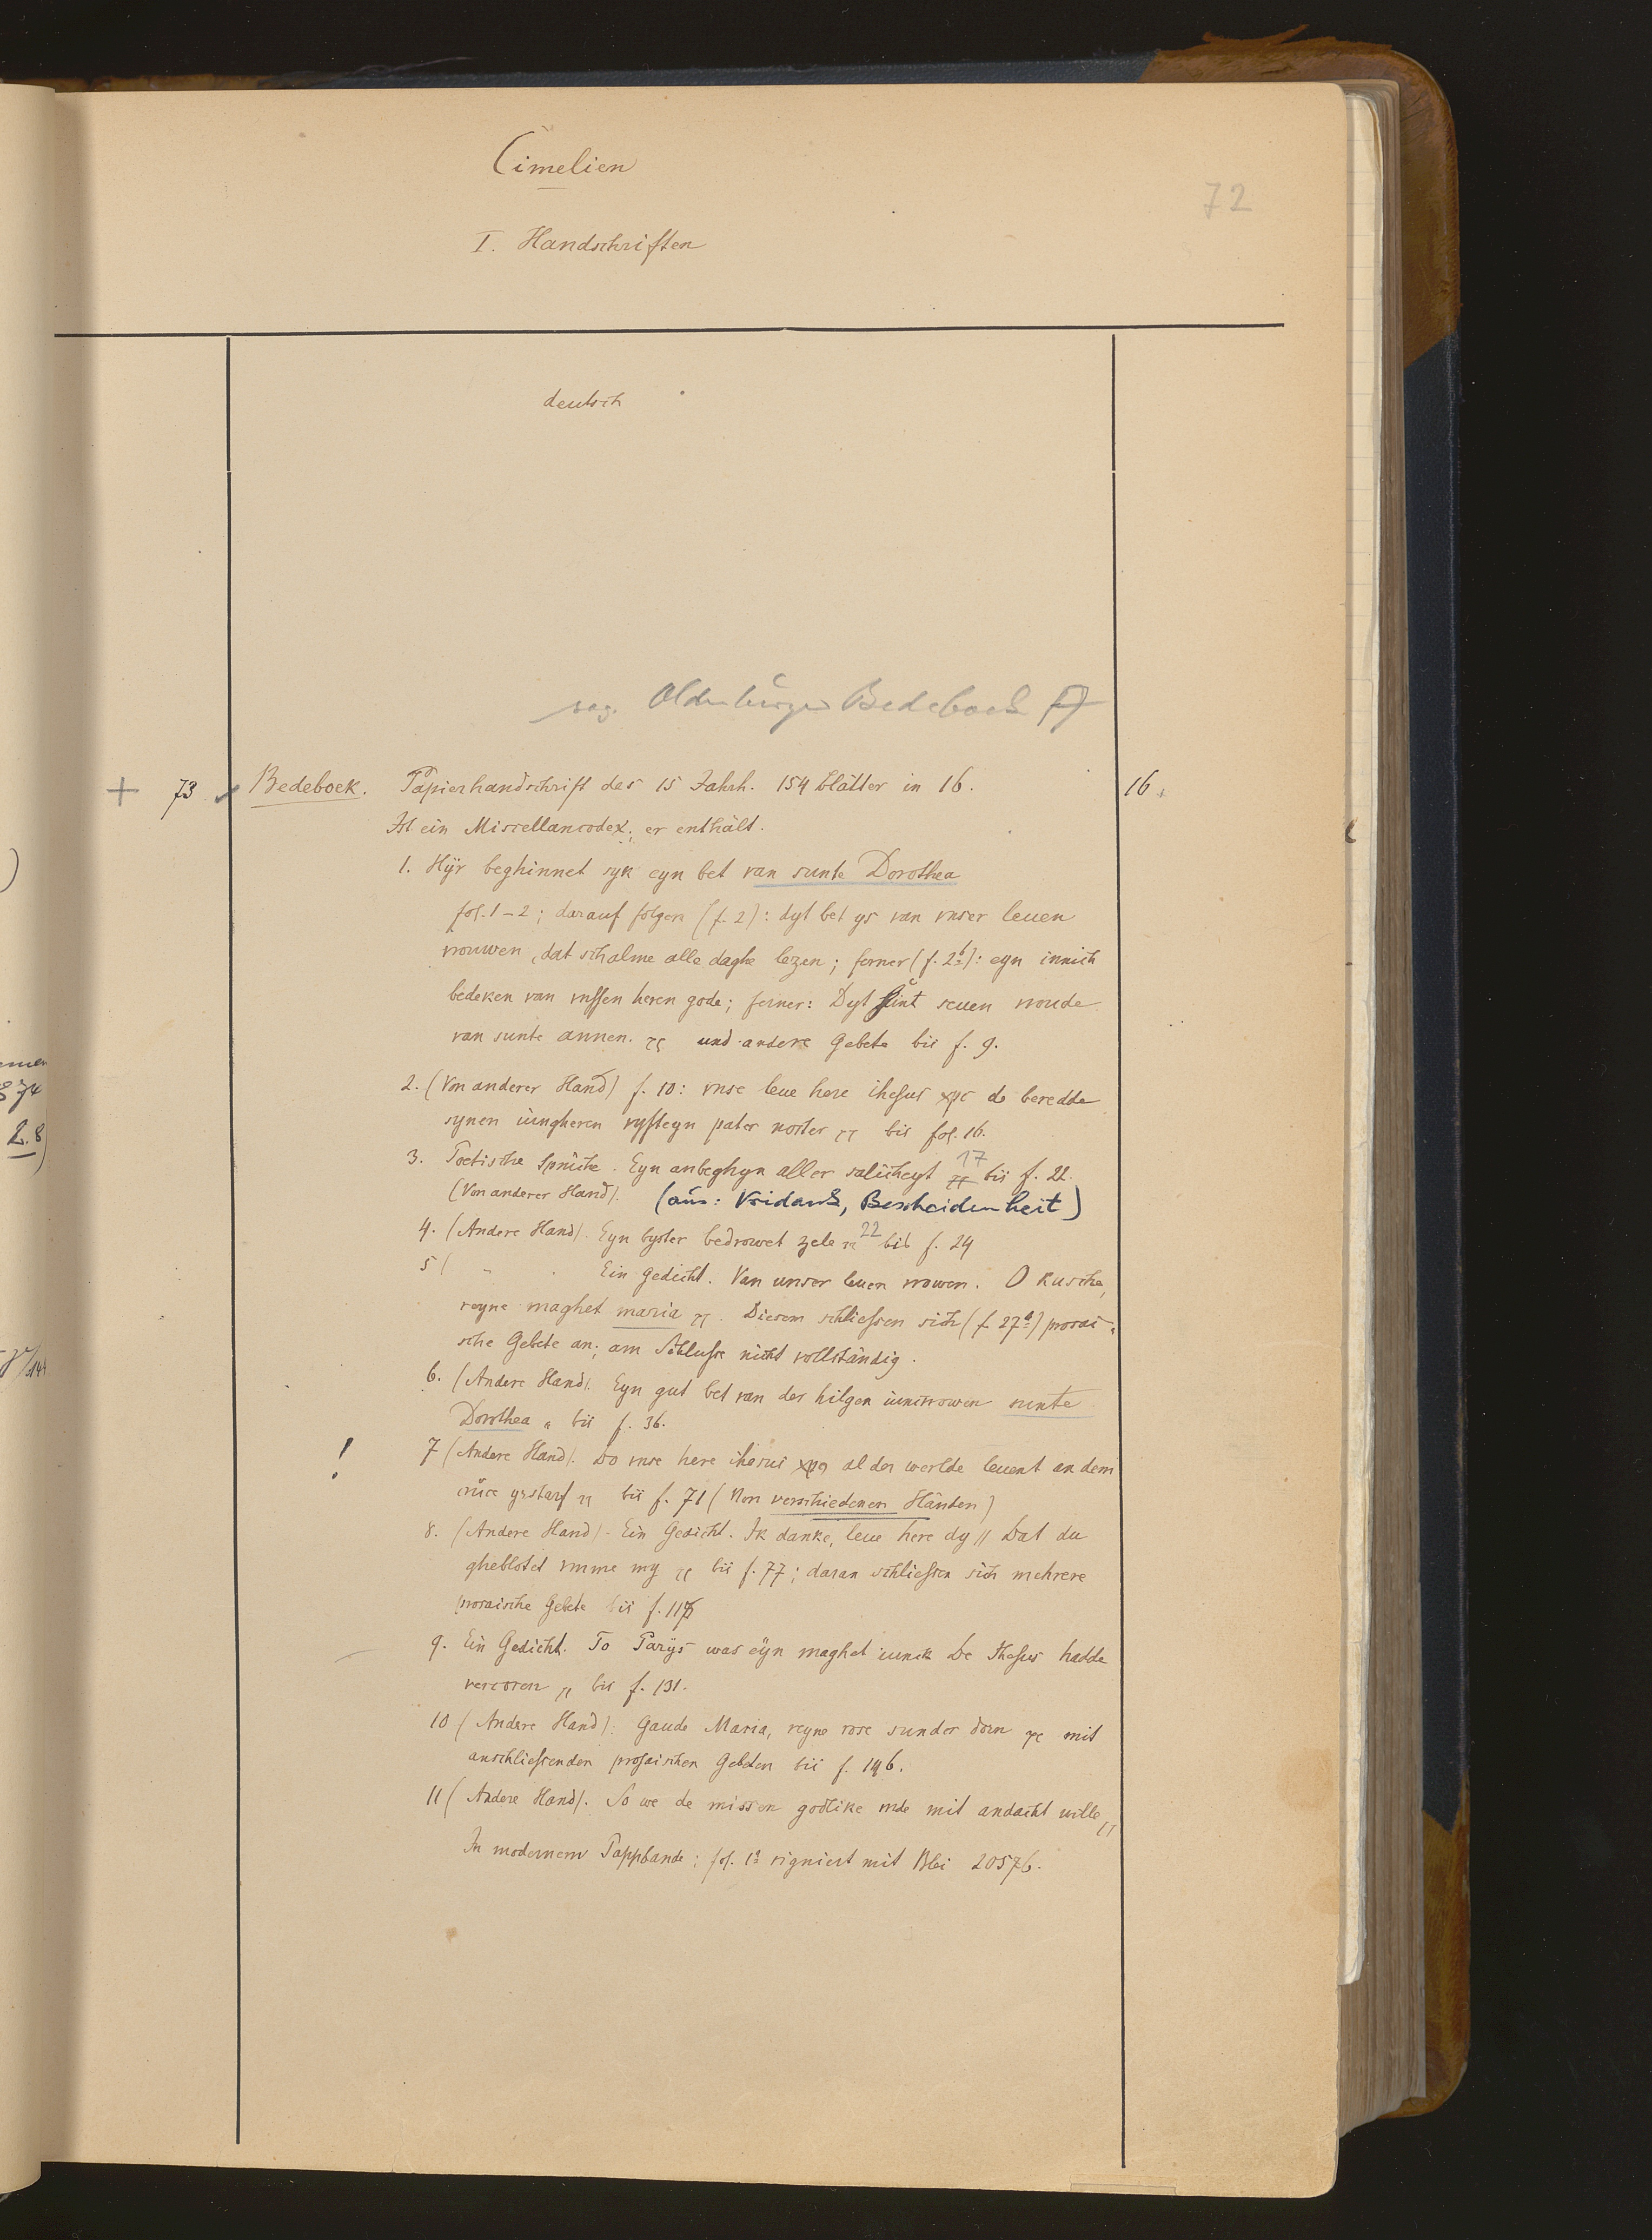 Cimelien
72
I. Handschriften
deutsch
sog. Oldenburger Bedeboek
+ 73 Bedeboek. Papierhandschrift des 15 Jahrh. 154 Blätter in 16. 16.
Ist ein Miscellancodex; er enthält.
1. Hÿr beghinnet syk eyn bet van sunte Dorothea
fol. 1-2; darauf folgen (f. 2): dyt bet ys van vnser leuen
vrouwen, dat schalme alle daghe lezen; ferner (f. 2b): eyn innich
bedeken van vnssen heren gode; ferner: Dyt sint seuen vroude
van sunte annen. und andere Gebete bis f. 9.
2. (Von anderer Hand) f. 10: vnse leue here ihesus xpc de beredde
synen iungheren vyfteyn pater noster bis fol. 16.
3. Poetische Sprüche. Eyn anbeghyn aller salicheyt 17 bis f. 22.
(Von anderer Hand). (aus: Vridank, Bescheidenheit)
4. (Andere Hand). Eyn byster bedrowet zele 22 bis f. 24
5 ( " Ein Gedicht. Van unser leuen vrowen. O kusche,
reyne maghet maria. Diesem schliessen sich (f. 27b) prosai-
sche Gebete an; am Schlusse nicht vollständig.
6. (Andere Hand). Eyn gut bet van der hilgen iuncvrowen sunte
Dorothea " bis f. 36.
! 7 (Andere Hand). Do vnse here ihesus xpc al der werlde leuent an dem
cruce ystarf bis f. 71 (Von verschiedenen Händen)
8. (Andere Hand). Ein Gedicht. Ik danke, leue here dy // Dat du
gheblotet vmme my bis f. 77; daran schliessen sich mehrere
prosaische Gebete bis f.
9. Ein Gedicht. To Parÿs was eÿn maghet iunck De Ihesus hadde
vercoren bis f. 131.
10 (Andere Hand). Gaude Maria, reyne rose sunder dorn mit
anschliessenden prosaischen Gebeten bis f. 146.
11 (Andere Hand). So we de missen godlike vnde mit andacht wille
In modernem Pappbande; fol. 1a signiert mit Blei 20576.